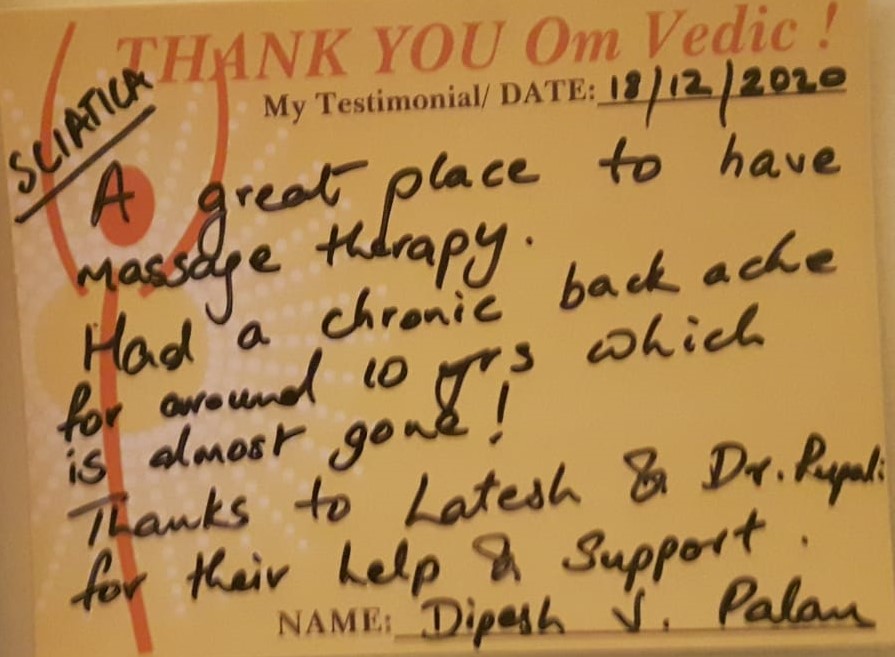 THANK YOU Om Vedic !
My Testimonial/ DATE: 18/12/2020
SCIATICA
A great place to have
massage therapy.
Had a chronic back ache
for around 10 yrs which
is almost gone!
Thanks to Latesh & Dr. Rupali
for their help & support.
NAME: Dipesh V. Palan